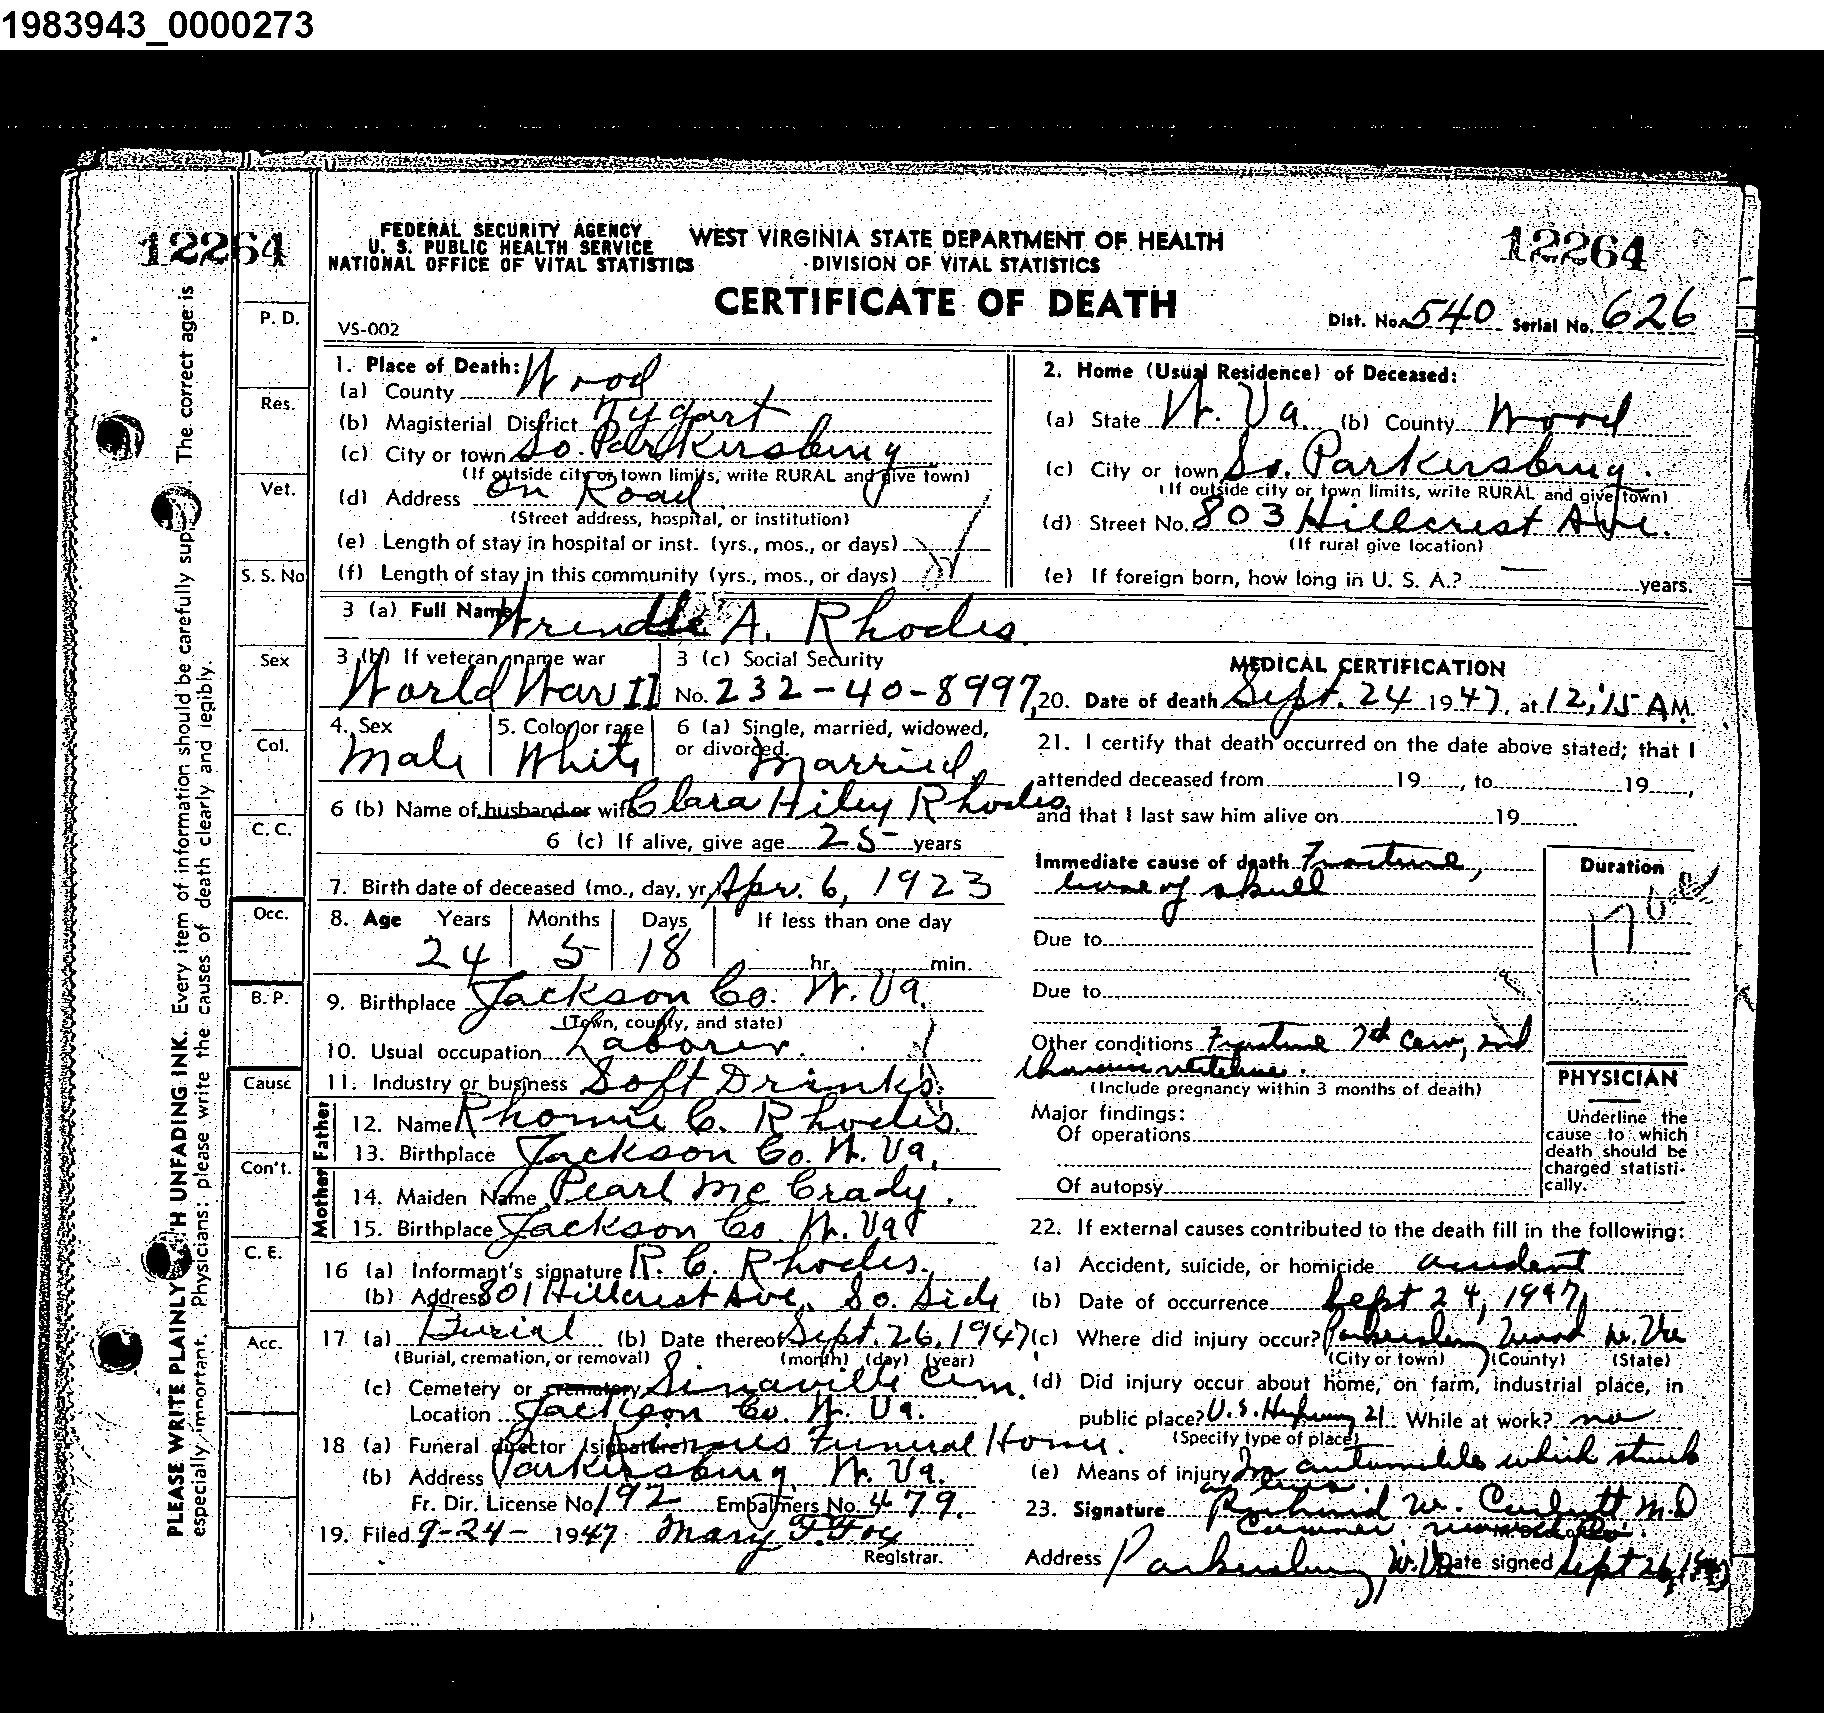 1983943_0000273
12264
12264
FEDERAL SECURITY AGENCY
U. S. PUBLIC HEALTH SERVICE
NATIONAL OFFICE OF VITAL STATISTICS
WEST VIRGINIA STATE DEPARTMENT OF HEALTH
DIVISION OF VITAL STATISTICS
CERTIFICATE OF DEATH
VS-002
Dist. No. 540 Serial No. 626
1. Place of Death:
(a) County Wood
(b) Magisterial District Tygart
(c) City or town So. Parkersburg
(If outside city or town limits, write RURAL and give town)
(d) Address On Road
(Street address, hospital, or institution)
(e) Length of stay in hospital or inst. (yrs., mos., or days)
(f) Length of stay in this community (yrs., mos., or days)
2. Home (Usual Residence) of Deceased:
(a) State W. Va. (b) County Wood
(c) City or town So. Parkersburg.
(If outside city or town limits, write RURAL and give town)
(d) Street No. 803 Hillcrest Ave.
(If rural give location)
(e) If foreign born, how long in U. S. A.? — years.
3 (a) Full Name A. Rhodes.
3 (b) If veteran, name war World War II
3 (c) Social Security No. 232-40-8997
4. Sex Male
5. Color or race White
6 (a) Single, married, widowed, or divorced. Married
6 (b) Name of husband or wife Clara Hiley Rhodes
6 (c) If alive, give age 25 years
7. Birth date of deceased (mo., day, yr.) Apr. 6, 1923
8. Age Years Months Days If less than one day
24 5 18 hr. min.
9. Birthplace Jackson Co. W. Va.
(Town, county, and state)
10. Usual occupation Laborer.
11. Industry or business Soft Drinks.
Father
12. Name C. Rhodes.
13. Birthplace Jackson Co. W. Va.
Mother
14. Maiden Name Pearl McCrady.
15. Birthplace Jackson Co W. Va
16 (a) Informant's signature R. C. Rhodes.
(b) Address 801 Hillcrest Ave. So. Side
17 (a) Burial (b) Date thereof Sept. 26, 1947
(Burial, cremation, or removal) (month) (day) (year)
(c) Cemetery or crematory Cem.
Location Jackson Co. W. Va.
18 (a) Funeral director (signature) Funeral Home.
(b) Address Parkersburg, W. Va.
Fr. Dir. License No. 192 Embalmers No. 479.
19. Filed 9-24- 1947 Mary F. Fox
Registrar.
MEDICAL CERTIFICATION
20. Date of death Sept. 24 1947, at 12:15 A M.
21. I certify that death occurred on the date above stated; that I
attended deceased from 19 , to 19 ,
and that I last saw him alive on 19
Immediate cause of death Fracture,
of skull
Duration
Due to
Due to
Other conditions Fracture 7th Cerv, 2nd
(Include pregnancy within 3 months of death)
Major findings:
Of operations
Of autopsy
PHYSICIAN
Underline the
cause to which
death should be
charged statisti-
cally.
22. If external causes contributed to the death fill in the following:
(a) Accident, suicide, or homicide accident
(b) Date of occurrence Sept 24, 1947
(c) Where did injury occur? Parkersburg Wood W. Va
(City or town) (County) (State)
(d) Did injury occur about home, on farm, industrial place, in
public place? U.S. Highway 21 While at work? no
(Specify type of place)
(e) Means of injury In automobile which struck
23. Signature W. M.D
Address Parkersburg, W. Va Date signed Sept 26, 1947
P. D.
Res.
Vet.
S. S. No
Sex
Col.
C. C.
Occ.
B. P.
Cause
Con't.
C. E.
Acc.
PLEASE WRITE PLAINLY WITH UNFADING INK. Every item of information should be carefully sup The correct age is
especially important. Physicians: please write the causes of death clearly and legibly.